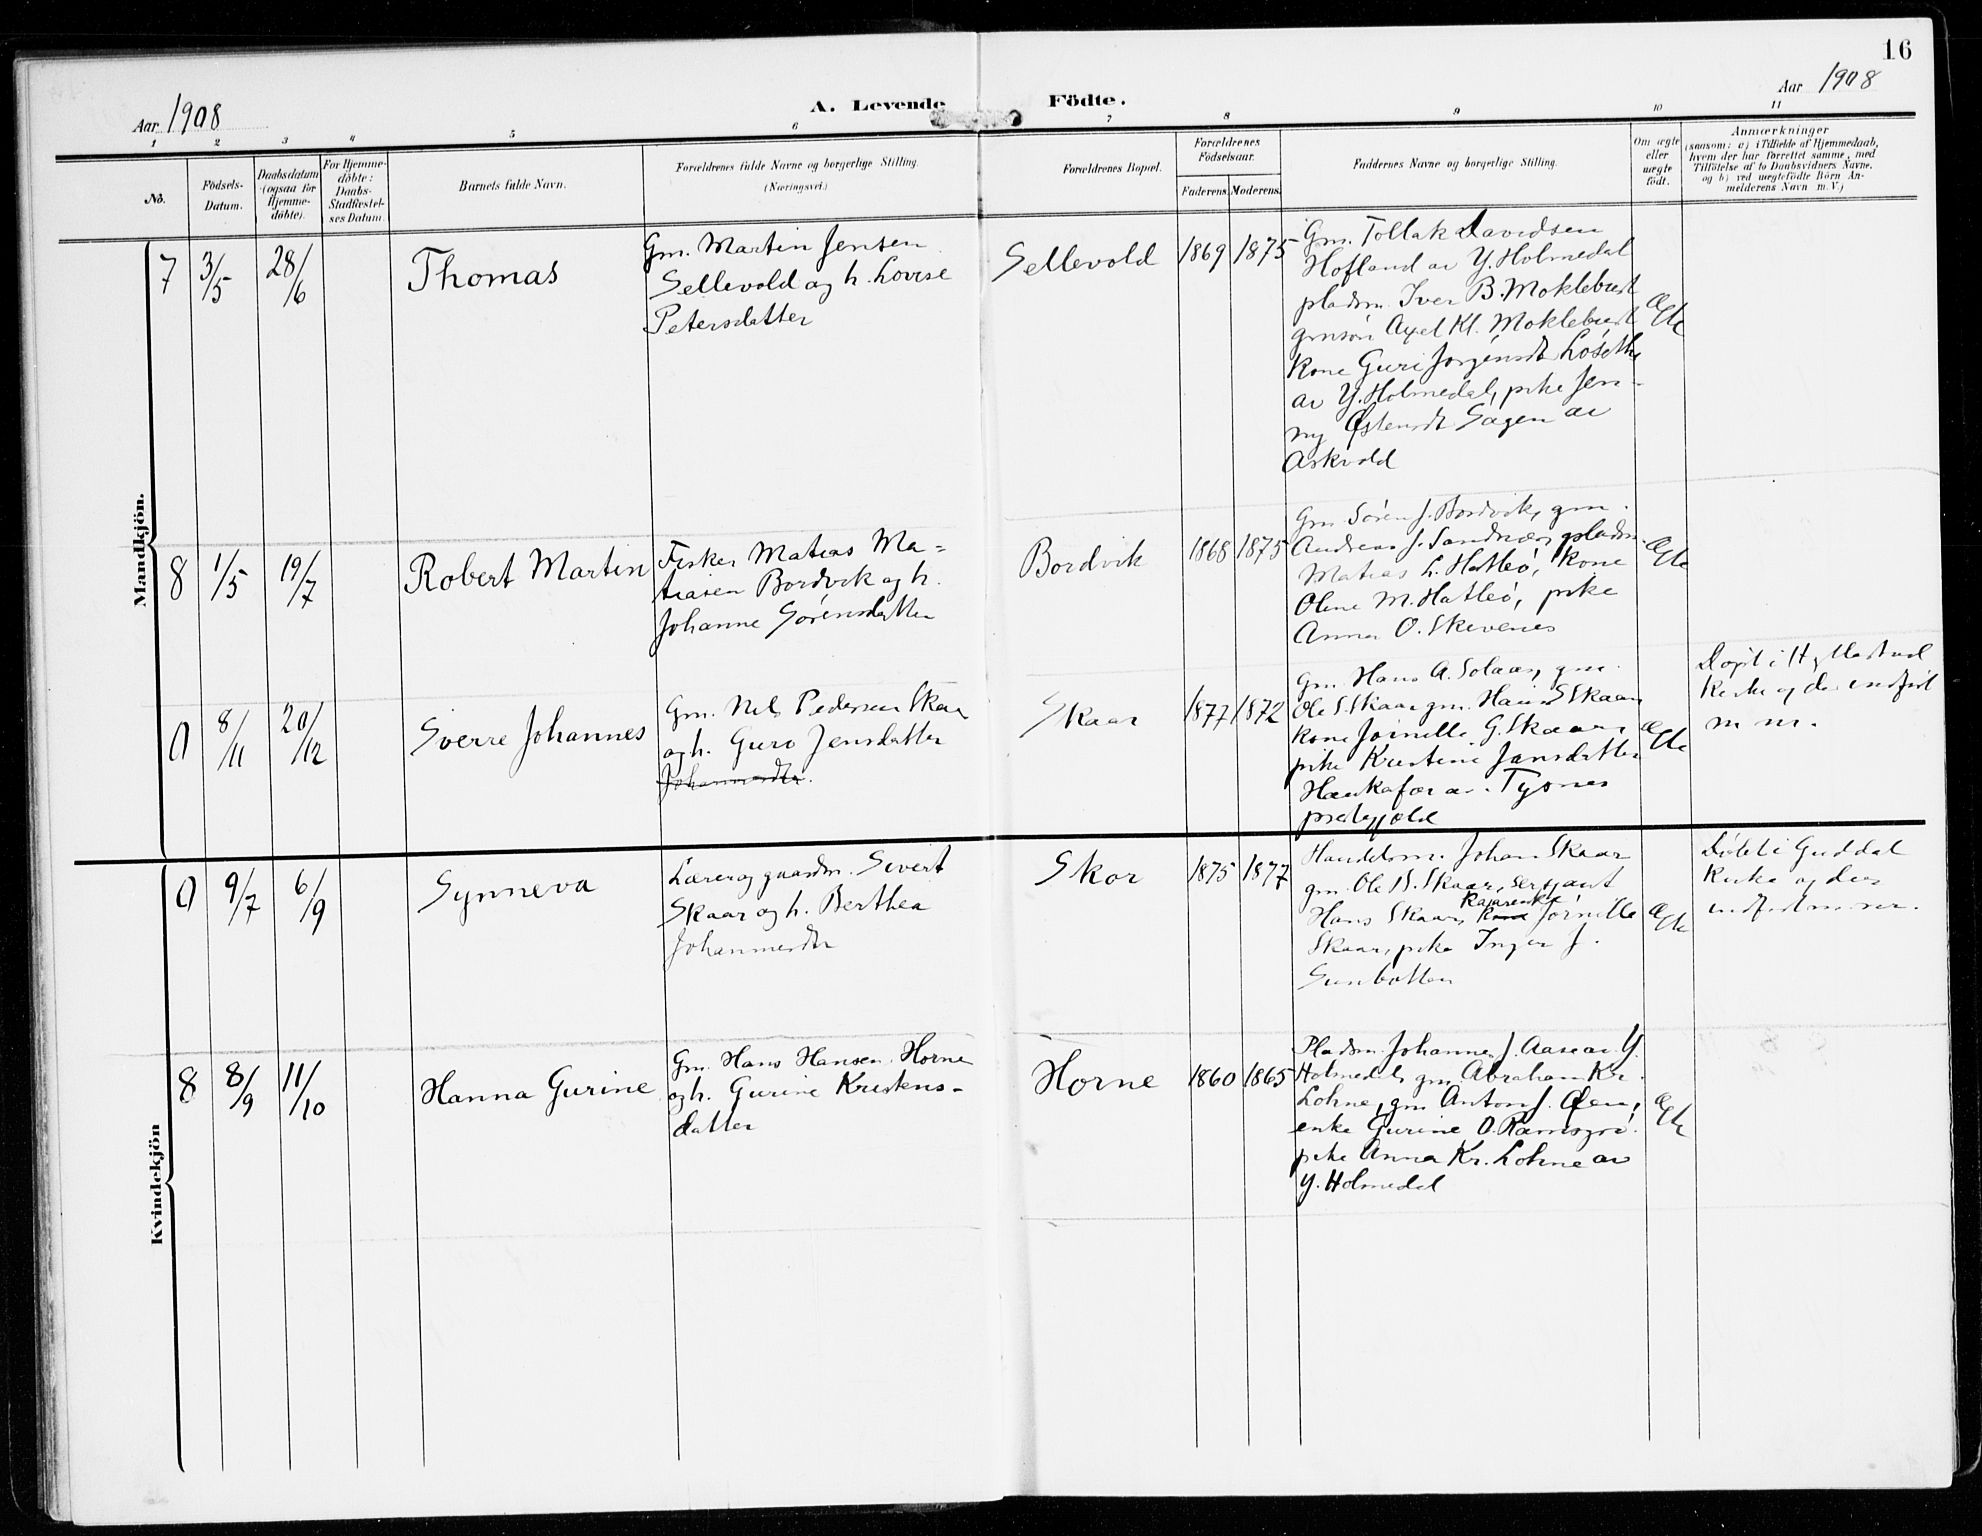 16
Aar 1908
A. Levende Födte.
Aar 1908
1 2 3 4 5 6 7 8 9 10 11
No.
Födsels-Datum.
Daabsdatum (ogsaa for Hjemmedöbte).
For Hjemmedöbte: Daabs-Stadfæstelses Datum.
Barnets fulde Navn.
Forældrenes fulde Navne og borgerlige Stilling.
(Næringsvei.)
Forældrenes Bopæl.
Forældrenes Födselsaar.
Faderens. Moderens.
Faddernes Navne og borgerlige Stilling.
Om ægte eller uægte födt.
Anmærkninger
(saasom: a) i Tilfælde af Hjemmedaab,
hvem der har forrettet samme, med
Tilföielse af to Daabsvidners Navne,
og b) ved uægtefödte Börn An-
melderens Navn m. V.)
Mandkjön.
7 3/5 28/6 Thomas
Gm. Martin Jensen
Sellevold og h. Lovise
Petersdatter
Sellevold 1869 1875
Gm. Tollak Davidsen
Hofland av Y. Holmedal
pladsm. Iver B. Moklebust
gmsøn Axel Kl. Moklebust
kone Guri Jørgensdt Løseth
av Y. Holmedal, pike Jen-
ny Østensdt Sagen av
Askvold
Ægte
8 1/5 19/7 Robert Martin
Fisker Matias Ma=
tiasen Bordvik og h.
Johanne Sørensdatter
Bordvik 1868 1875
Gm Søren J. Bordvik, gm.
Andreas J. Sandnæs, pladsm.
Matias L. Hatleø, kone
Oline M. Hatleø, pike
Anna O. Skivenes
Ægte
0 8/11 20/12 Sverre Johannes
Gm. Nils Pedersen Skaar
og h. Guro Jensdatter
Johannesdtr.
Skaar 1877 1872
Gm. Hans A. Solaas, gm.
Ole S. Skaar gm. Hans S Skaar
kone Jørnille G. Skaar,
pike Kristine Jansdatter
Haukafær av Tysnes
prestegjæld
Ægte
Døpt i Hyllestad
Kirke og der indført
m m.
Kvindekjön
0 9/7 6/9 Synneva
Lærer og gaardm. Sivert
Skaar og h. Berthea
Johannesdtr
Skor 1875 1877
Handelsm. Johan Skaar
gm. Ole B. Skaar, sersjant
Hans Skaar, kone Jørnille
Skaar, pike Inger J.
Ægte
Døbt i Guddal
Kirke og der
indført m. m.
8 8/9 11/10 Hanna Gurine
Gm. Hans Hansen Horne
og h. Gurine Kristens-
datter
Horne 1860 1865
Pladsm. Johannes J. Aase av Y.
Holmedal, gm Abraham Kr.
Lohne, gm Anton J.
enke Gurine O. Ramsgrø.
pike Anna Kr. Lohne av
Y. Holmedal
Ægte